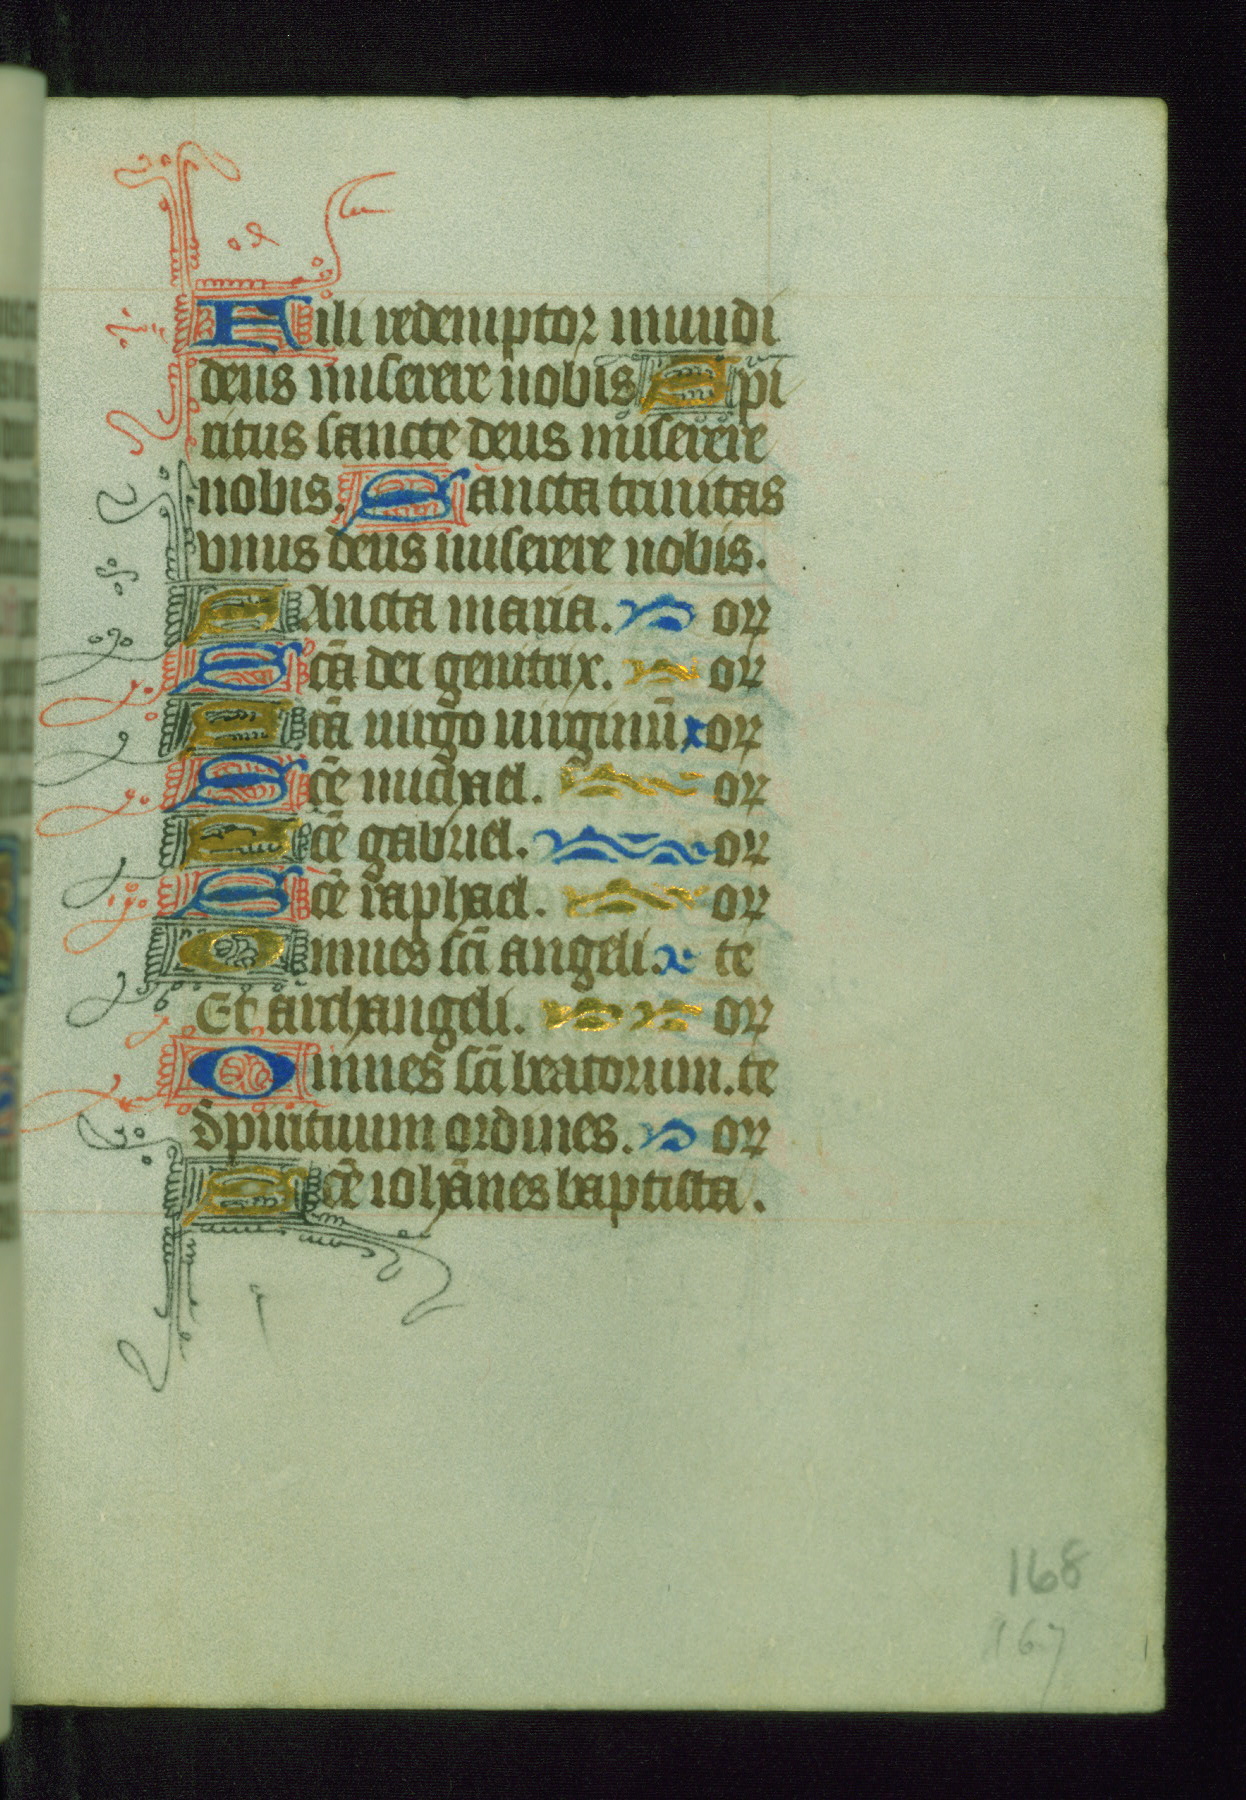 Fili redemptor mundi
deus miserere nobis Spi
ritus sancte deus miserere
nobis. Sancta trinitas
vnus deus miserere nobis.
SAncta maria. orꝝ
Scā dei genitrix. or
Scā uirgo uirginū orꝝ
Scē michael. orꝝ
Scē gabriel. orꝝ
Scē raphael. orꝝ
Omnes sc̄i angeli. te
Et archangeli. orꝝ
Omnes sc̄i beatorum. te
Spirituum ordines. orꝝ
Scē ioħānes baptista.
168
167